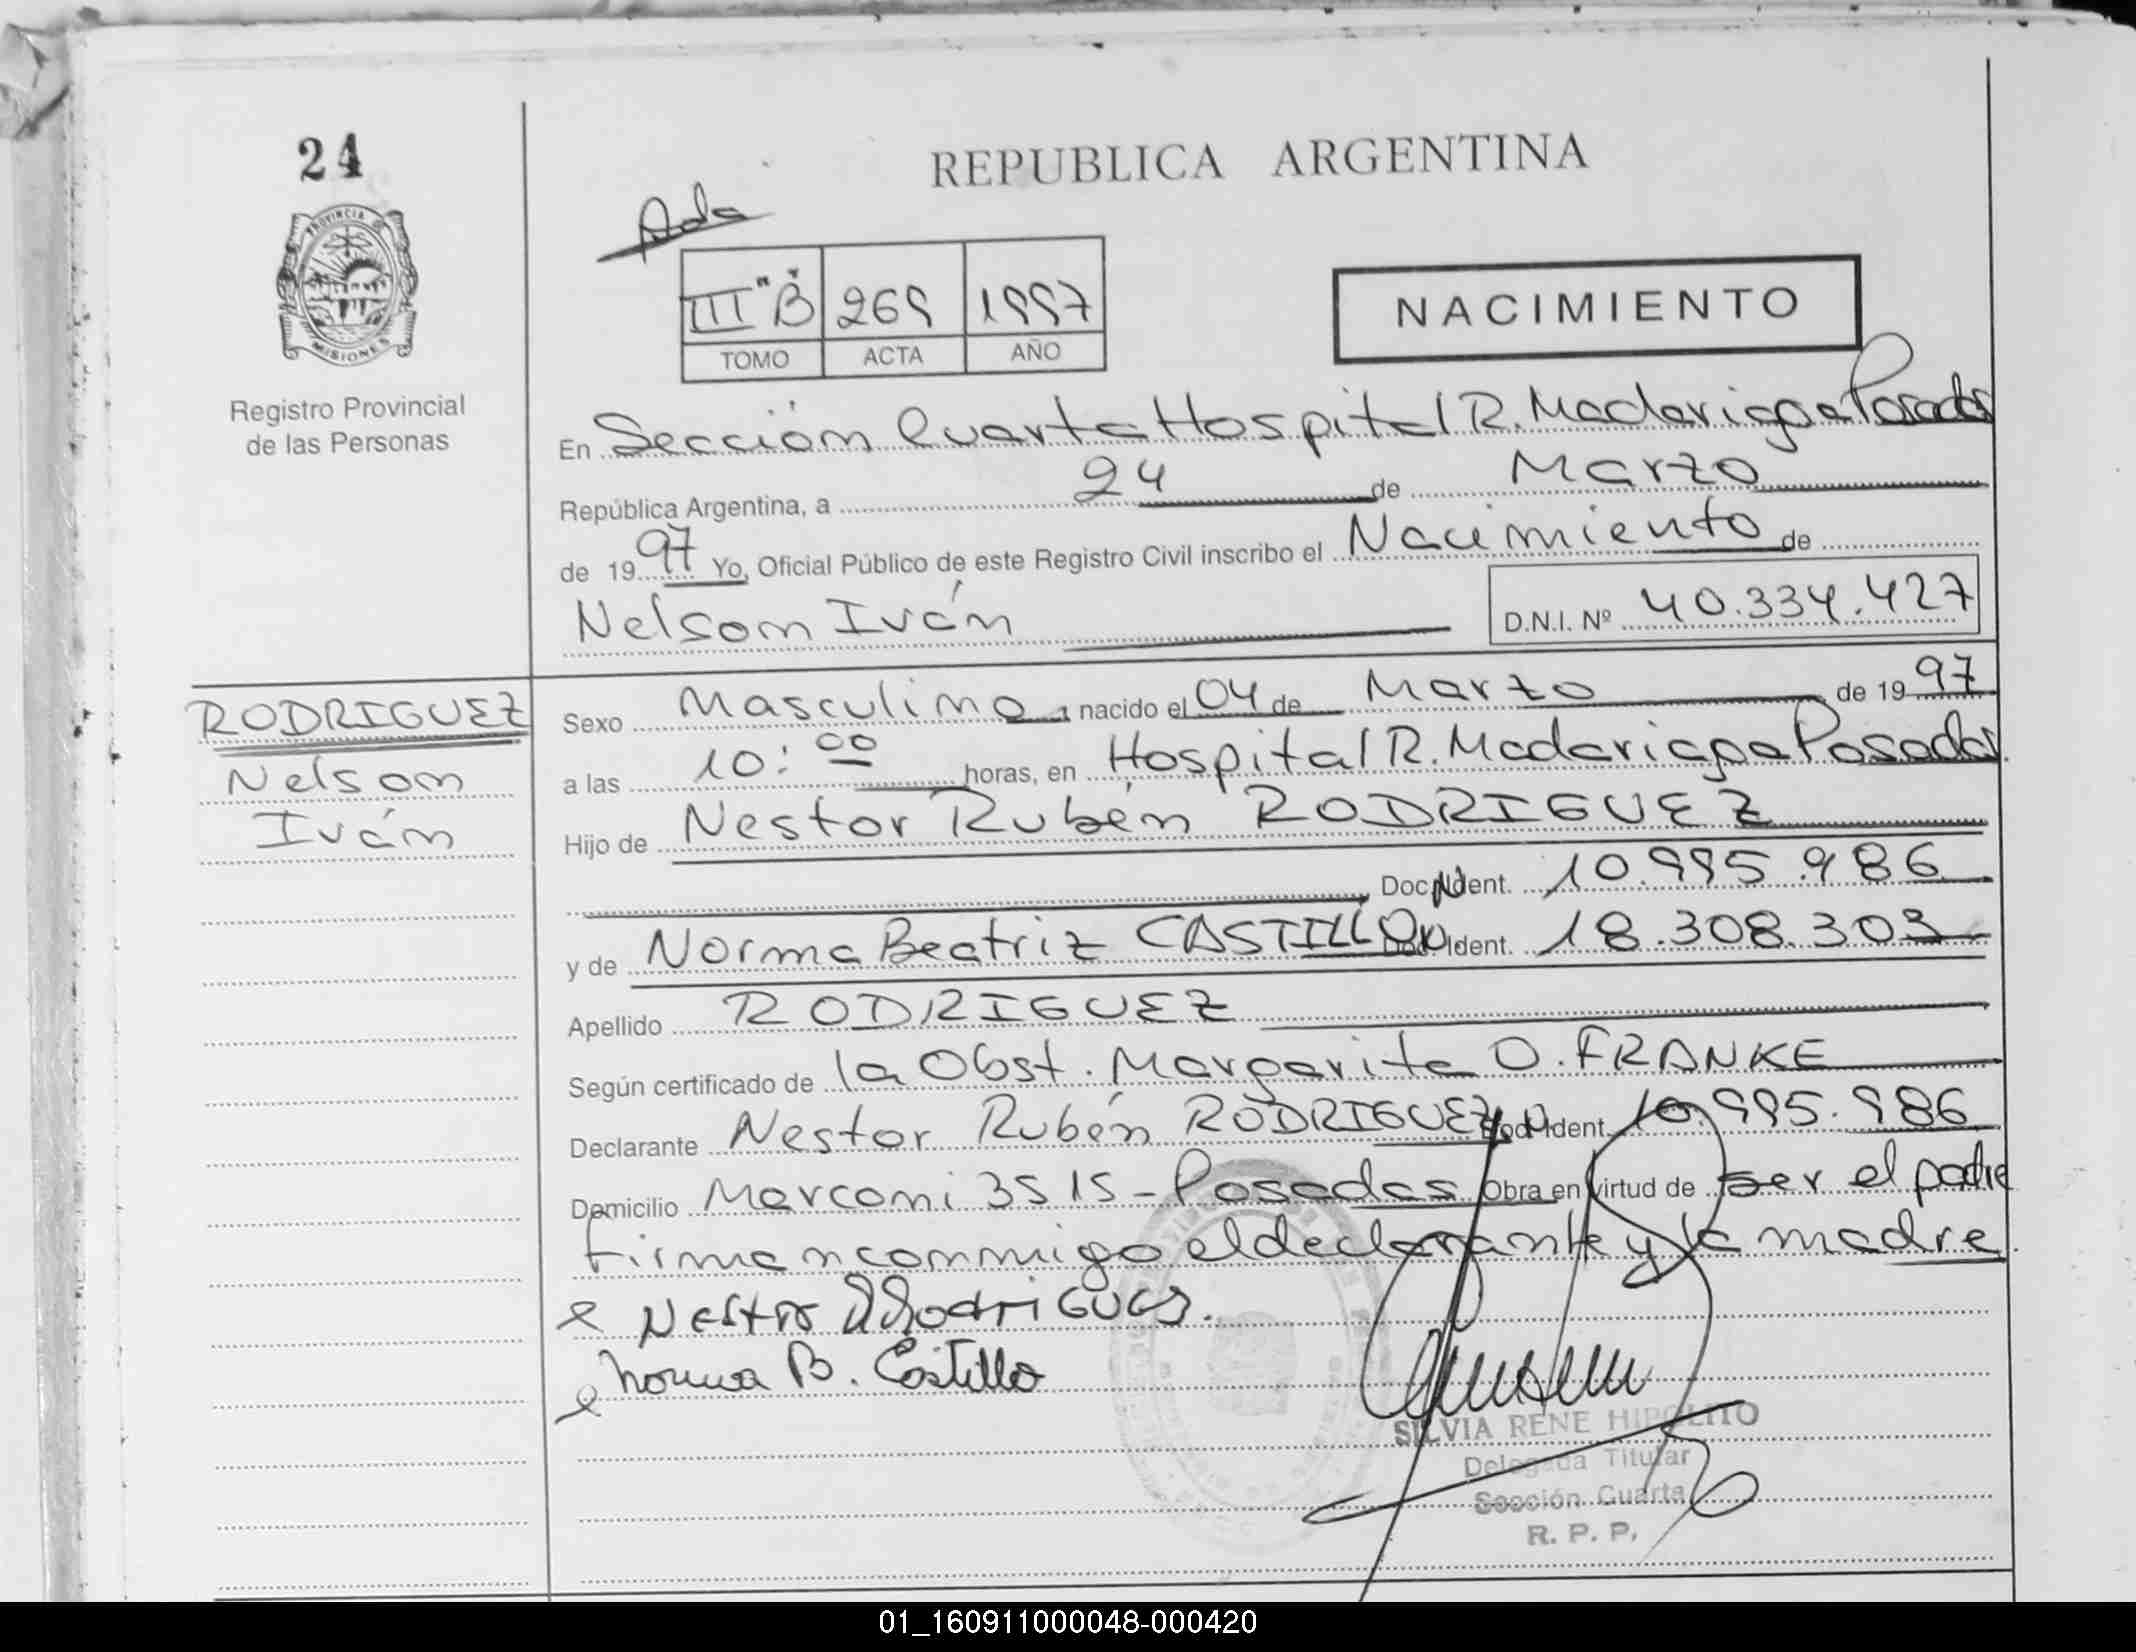 24
REPUBLICA ARGENTINA
PROVINCIA DE
MISIONES
III "B" 269 1997
TOMO ACTA AÑO
NACIMIENTO
Registro Provincial
de las Personas
En Sección Cuarta Hospital R. Madariaga Posadas
República Argentina, a 24 de Marzo
de 1997 Yo, Oficial Público de este Registro Civil inscribo el Nacimiento de
Nelson Iván
D.N.I. Nº 40.334.427
RODRIGUEZ
Nelson
Iván
Sexo Masculino, nacido el 04 de Marzo de 1997
a las 10:00 horas, en Hospital R. Madariaga Posadas
Hijo de Nestor Rubén RODRIGUEZ
Doc. Ident. 10.995.986
y de Norma Beatriz CASTILLO Doc. Ident. 18.308.303
Apellido RODRIGUEZ
Según certificado de la Obst. Margarita O. FRANKE
Declarante Nestor Rubén RODRIGUEZ Doc. Ident. 10.995.986
Domicilio Marconi 3515 - Posadas Obra en virtud de ser el padre
firman conmigo el declarante y la madre.
Norma B. Castillo
SILVIA RENE HIPOLITO
Delegada Titular
Sección Cuarta
R. P. P.
01_160911000048-000420